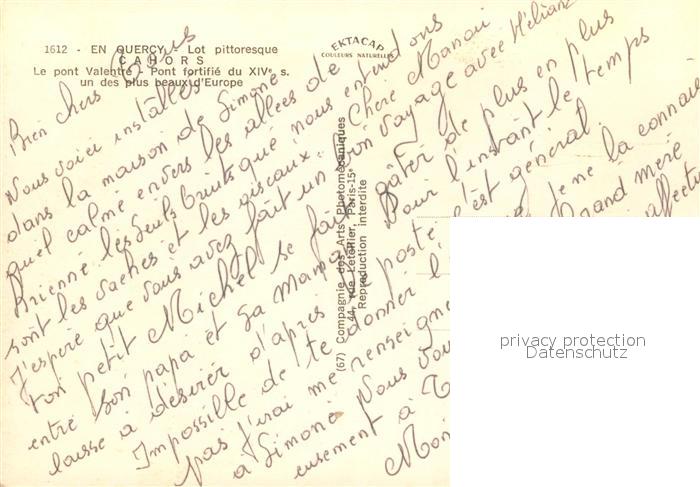 1612 - EN QUERCY - Lot pittoresque
CAHORS
Le pont Valentré - Pont fortifié du XIVe s.
un des plus beaux d'Europe
EKTACAP
COULEURS NATURELLES
(67) Compagnie des Arts Photomécaniques
44, rue Letellier, Paris-15e
Reproduction interdite
Bien chers tous
Nous voici installés
dans la maison de Simone
quel calme envers les allées de
Brienne les seuls bruits que nous entendons
sont les vaches et les oiseaux. Chère Manou
J'espère que vous avez fait un bon voyage avec Hélians
ton petit Michel se fait gâter de plus en plus
entre son papa et sa maman Pour l'instant le temps
laisse à désirer d'après le poste c'est général.
Impossible de te donner l' je ne la connais
pas j'irai me renseigne Grand mère
a Simone Nous vou affectu
eusement à T
Mon
privacy protection
Datenschutz